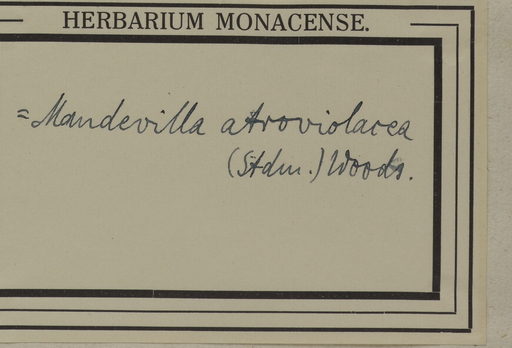 HERBARIUM MONACENSE.
= Mandevilla atroviolacea
(Stdm.) Woods.